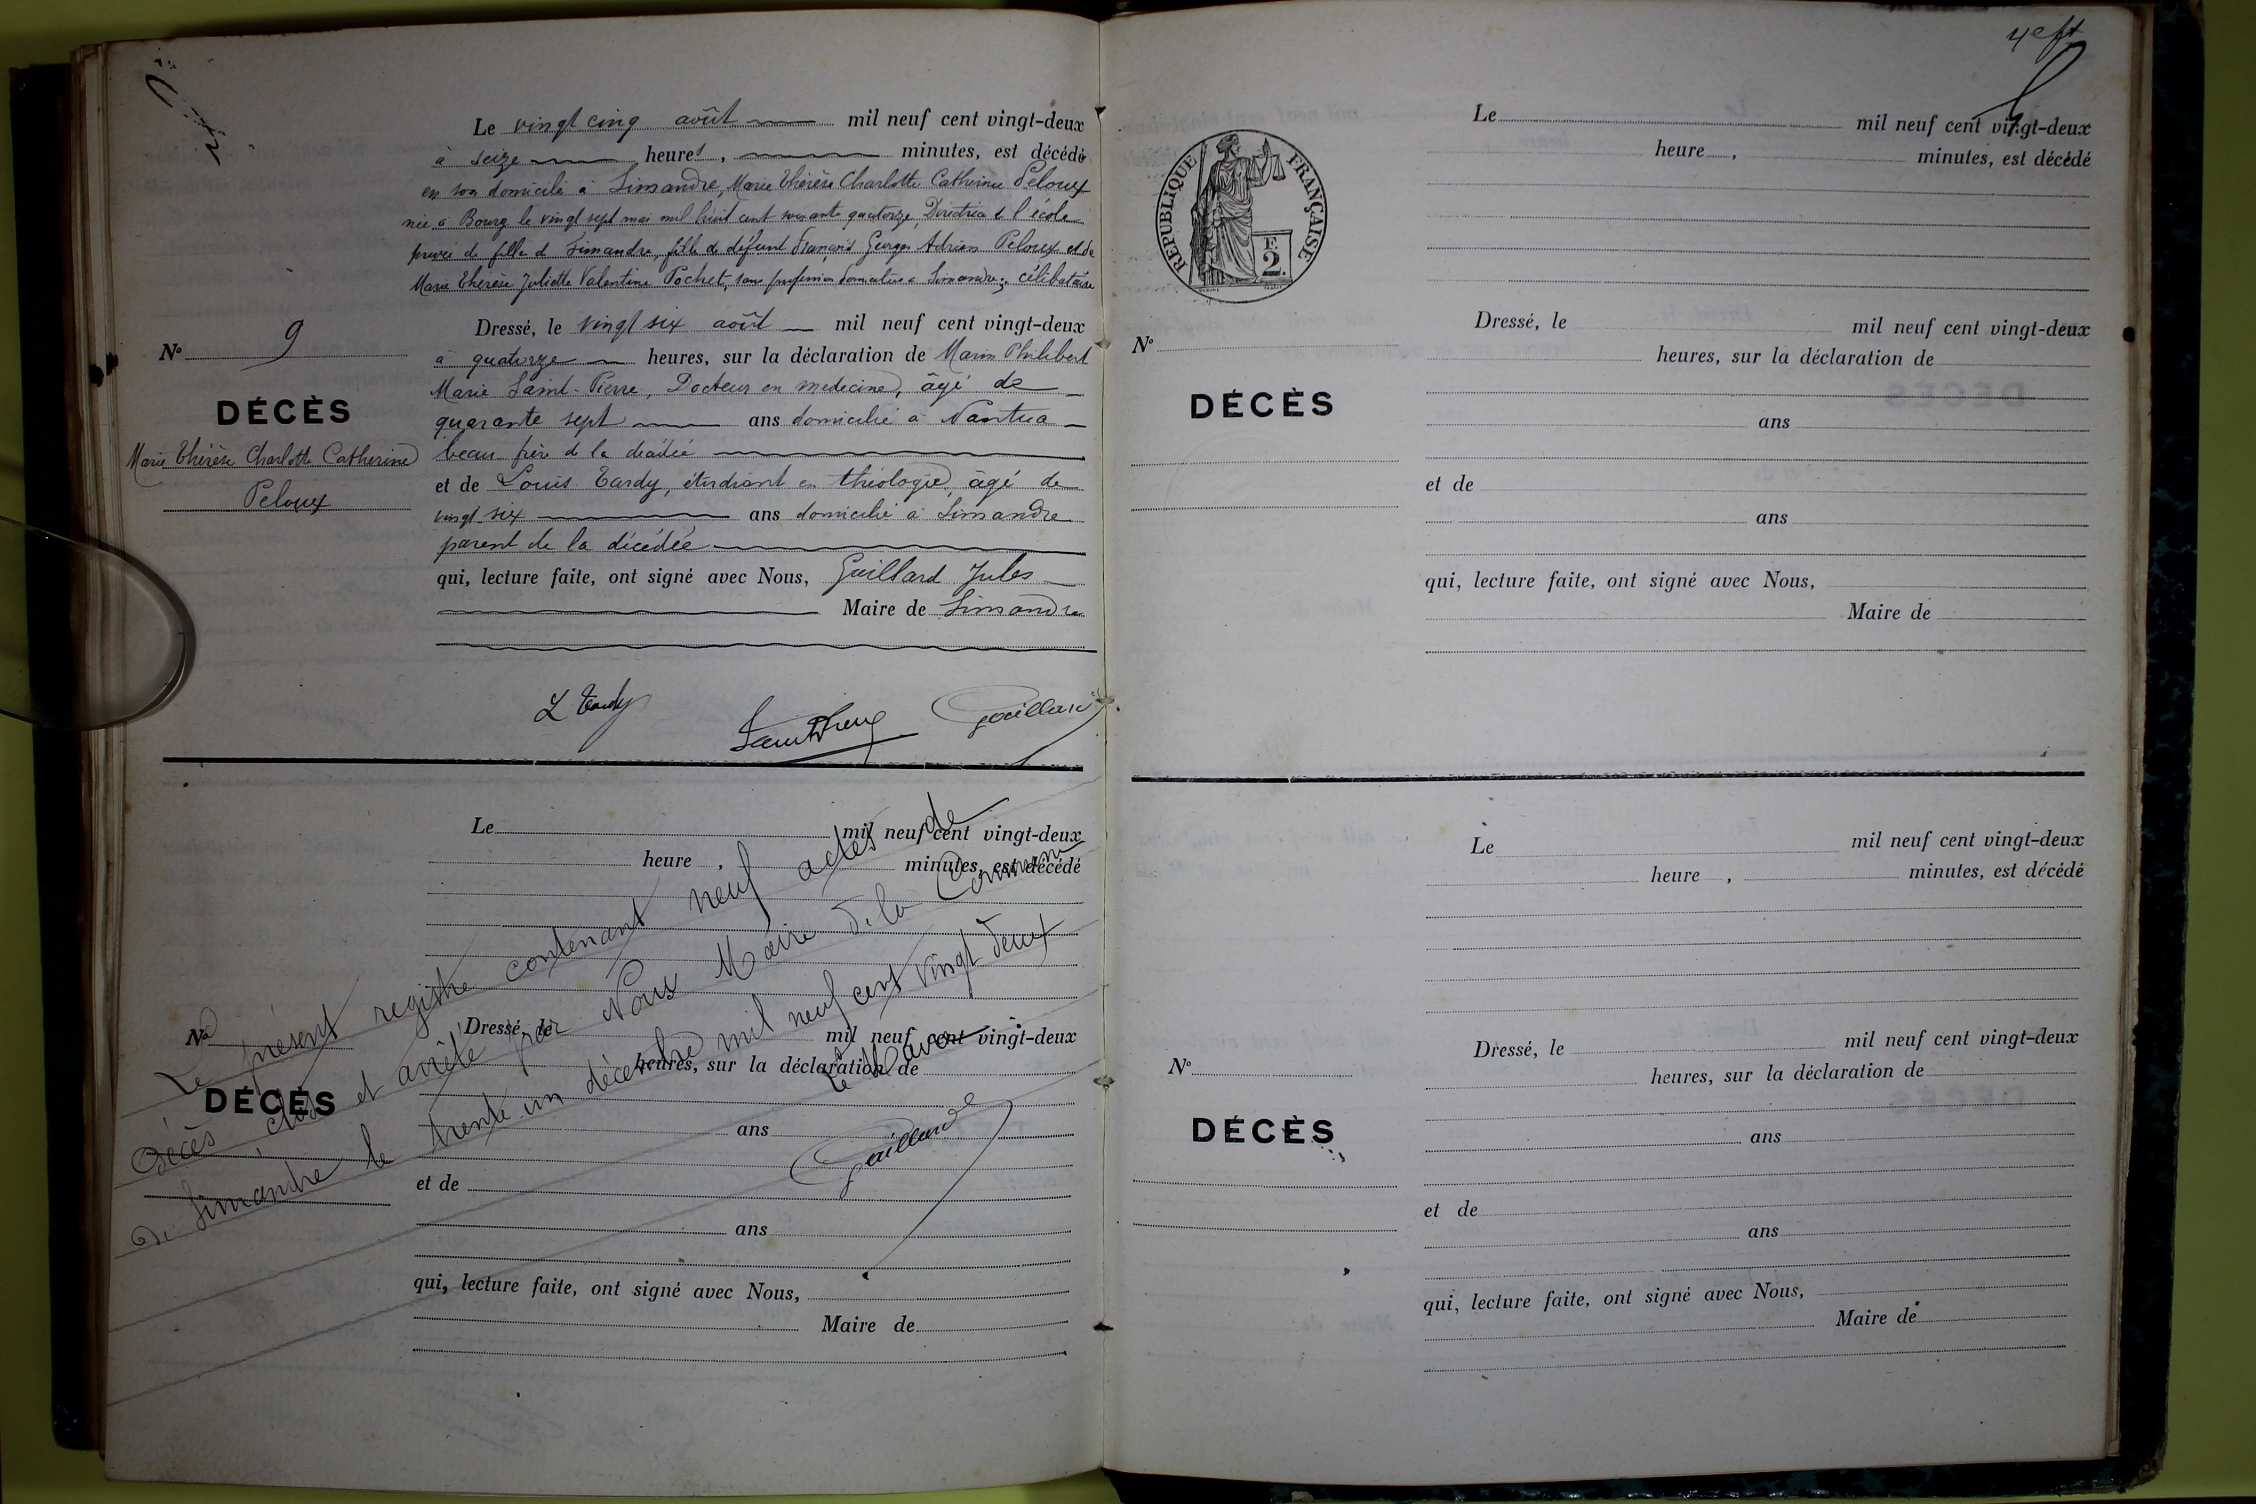 Le vingt cinq août mil neuf cent vingt-deux
à seize heures, minutes, est décédé
en son domicile à Simandre, Marie Thérèse Charlotte Catherine Peloux
née à Bourg le vingt sept mai mil huit cent soixante quatorze, Directrice de l'école
privée de fille de Simandre, fille de défunt François Georges Adrien Peloux et de
Marie Thérèse Juliette Valentine Pochet, sans profession domiciliée à Simandre; célibataire
Nº 9
DÉCÈS
Marie Thérèse Charlotte Catherine
Peloux
Dressé, le vingt six août mil neuf cent vingt-deux
à quatorze heures, sur la déclaration de Marin Philibert
Marie Saint-Pierre, Docteur en medecine, âgé de
quarante sept ans domicilié à Nantua
beau frère de la décédée
et de Louis Tardy, étudiant en théologie, âgé de
vingt six ans domicilié à Simandre
parent de la décédée
qui, lecture faite, ont signé avec Nous, Guillard Jules
Maire de Simandre
L Tardy
Saint Pierre
Guillard
Le mil neuf cent vingt-deux
heure , minutes, est décédé
Nº
DÉCÈS
Dressé, le mil neuf cent vingt-deux
heures, sur la déclaration de
ans
et de
ans
qui, lecture faite, ont signé avec Nous,
Maire de
Le présent registre contenant neuf actes de
Décès clos et arrêté par Nous Maire de la Commune
de Simandre le trente un décembre mil neuf cent vingt deux
Le Maire
Guillard
RÉPUBLIQUE FRANÇAISE
F.
2.
Le mil neuf cent vingt-deux
heure , minutes, est décédé
Nº
DÉCÈS
Dressé, le mil neuf cent vingt-deux
heures, sur la déclaration de
ans
et de
ans
qui, lecture faite, ont signé avec Nous,
Maire de
Le mil neuf cent vingt-deux
heure , minutes, est décédé
Nº
DÉCÈS
Dressé, le mil neuf cent vingt-deux
heures, sur la déclaration de
ans
et de
ans
qui, lecture faite, ont signé avec Nous,
Maire de